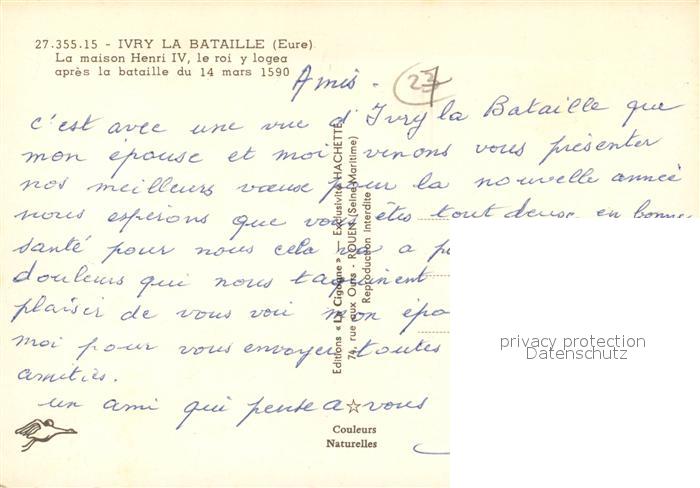 27.355.15 - IVRY LA BATAILLE (Eure)
La maison Henri IV, le roi y logea
après la bataille du 14 mars 1590
Amis.
23
c'est avec une vue d'Ivry la Bataille que
mon épouse et moi venons vous présenter
nos meilleurs vœux pour la nouvelle année
nous espérons que vous êtes tout deux en bonne
santé pour nous cela va a
douleurs qui nous taquinent
plaisir de vous voir mon
moi pour vous envoyer toutes
amitiés.
un ami qui pense a vous
Editions « La Cigogne » — Exclusivité HACHETTE
74, rue aux Ours - ROUEN (Seine-Maritime)
Reproduction Interdite
Couleurs
Naturelles
privacy protection
Datenschutz